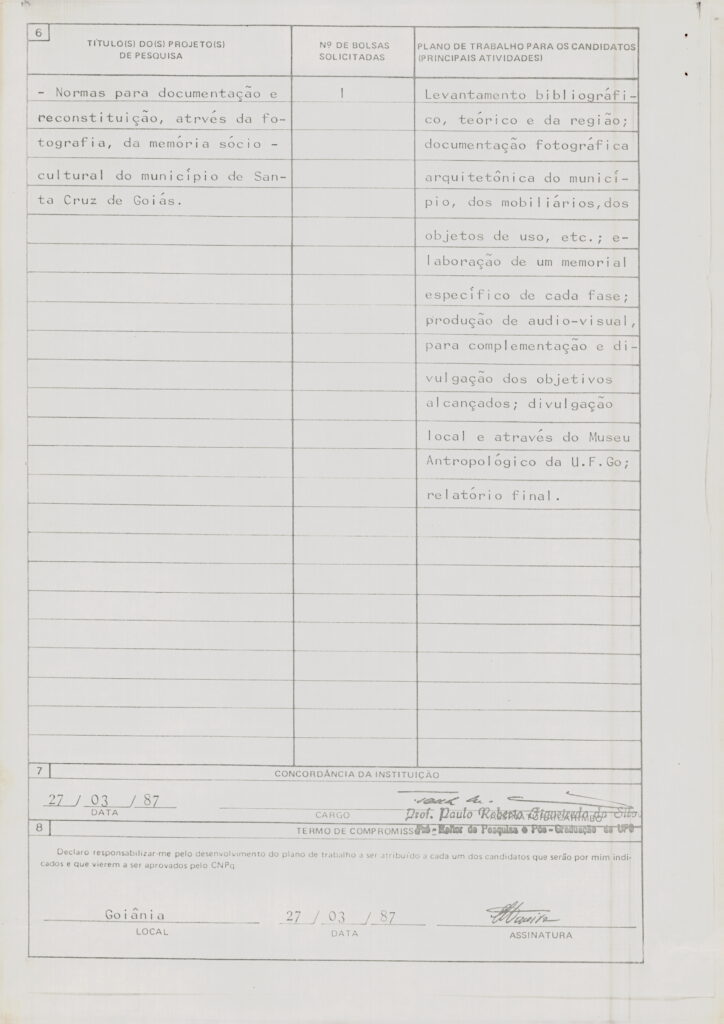 6
TÍTULO(S) DO(S) PROJETO(S)
DE PESQUISA
Nº DE BOLSAS
SOLICITADAS
PLANO DE TRABALHO PARA OS CANDIDATOS
(PRINCIPAIS ATIVIDADES)
- Normas para documentação e
reconstituição, atrvés da fo-
tografia, da memória sócio -
cultural do município de San-
ta Cruz de Goiás.
1
Levantamento bibliográfi-
co, teórico e da região;
documentação fotográfica
arquitetônica do municí-
pio, dos mobiliários,dos
objetos de uso, etc.; e-
laboração de um memorial
específico de cada fase;
produção de audio-visual,
para complementação e di-
vulgação dos objetivos
alcançados; divulgação
local e através do Museu
Antropológico da U.F.Go;
relatório final.
7
CONCORDÂNCIA DA INSTITUIÇÃO
27 / 03 / 87
DATA
CARGO
Prof. Paulo Roberto
Pró-Reitor de Pesquisa e Pós-Graduação da UFG
8
TERMO DE COMPROMISSO
Declaro responsabilizar-me pelo desenvolvimento do plano de trabalho a ser atribuído a cada um dos candidatos que serão por mim indi-
cados e que vierem a ser aprovados pelo CNPq.
Goiânia
LOCAL
27 / 03 / 87
DATA
ASSINATURA